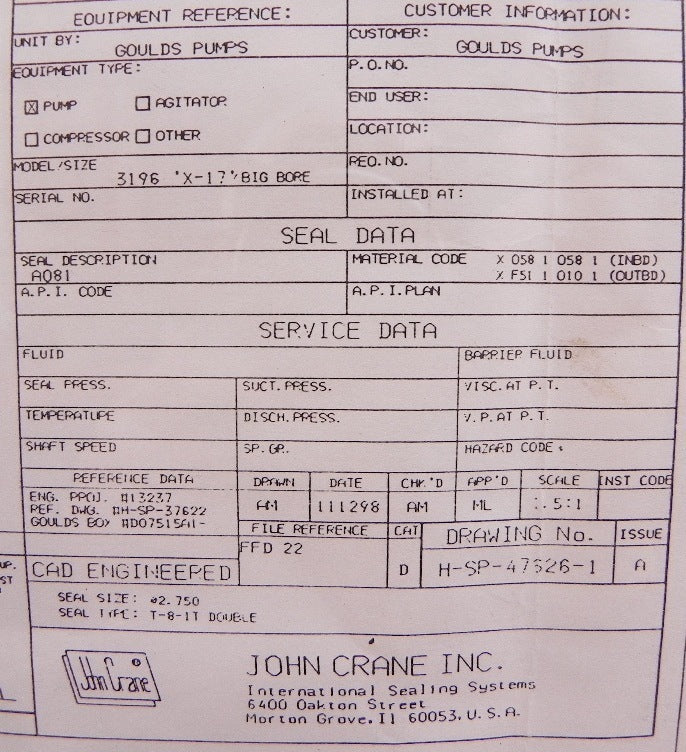 EQUIPMENT REFERENCE:
CUSTOMER INFORMATION:
UNIT BY:
GOULDS PUMPS
CUSTOMER:
GOULDS PUMPS
EQUIPMENT TYPE:
P.O.NO.
X PUMP
AGITATOR
END USER:
COMPRESSOR
OTHER
LOCATION:
MODEL/SIZE
3196 "X-17" BIG BORE
REQ.NO.
SERIAL NO.
INSTALLED AT:
SEAL DATA
SEAL DESCRIPTION
AQ81
MATERIAL CODE X 058 1 058 1 (INBD)
X F51 1 010 1 (OUTBD)
A.P.I. CODE
A.P.I.PLAN
SERVICE DATA
FLUID
BARRIER FLUID
SEAL PRESS.
SUCT.PRESS.
VISC.AT P.T.
TEMPERATURE
DISCH.PRESS.
V.P.AT P.T.
SHAFT SPEED
SP.GR.
HAZARD CODE:
REFERENCE DATA
DRAWN
DATE
CHK'D
APP'D
SCALE
INST CODE
ENG. PROJ. #13237
REF. DWG. #H-SP-37622
GOULDS BOX #D07515A1-
AM
111298
AM
ML
.5:1
FILE REFERENCE
CAT
DRAWING No.
ISSUE
FFD 22
D
A
CAD ENGINEERED
SEAL SIZE: ø2.750
SEAL TYPE: T-8-1T DOUBLE
John Crane
JOHN CRANE INC.
International Sealing Systems
6400 Oakton Street
Morton Grove.Il 60053.U.S.A.